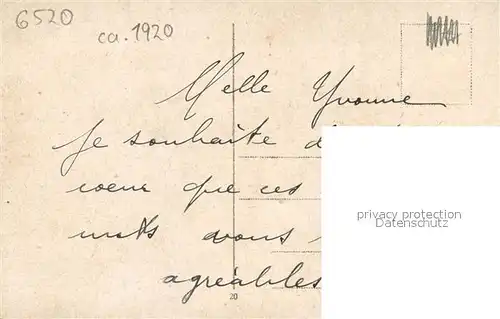 6520
ca. 1920
Melle Yvonne
Je souhaite
coeur que ces
mots vous
agréables
privacy protection
Datenschutz
20